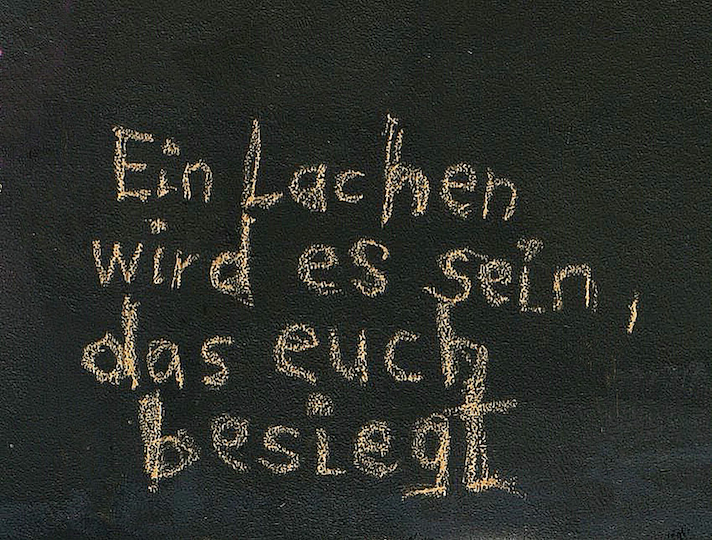 Ein Lachen
wird es sein,
das euch
besiegt